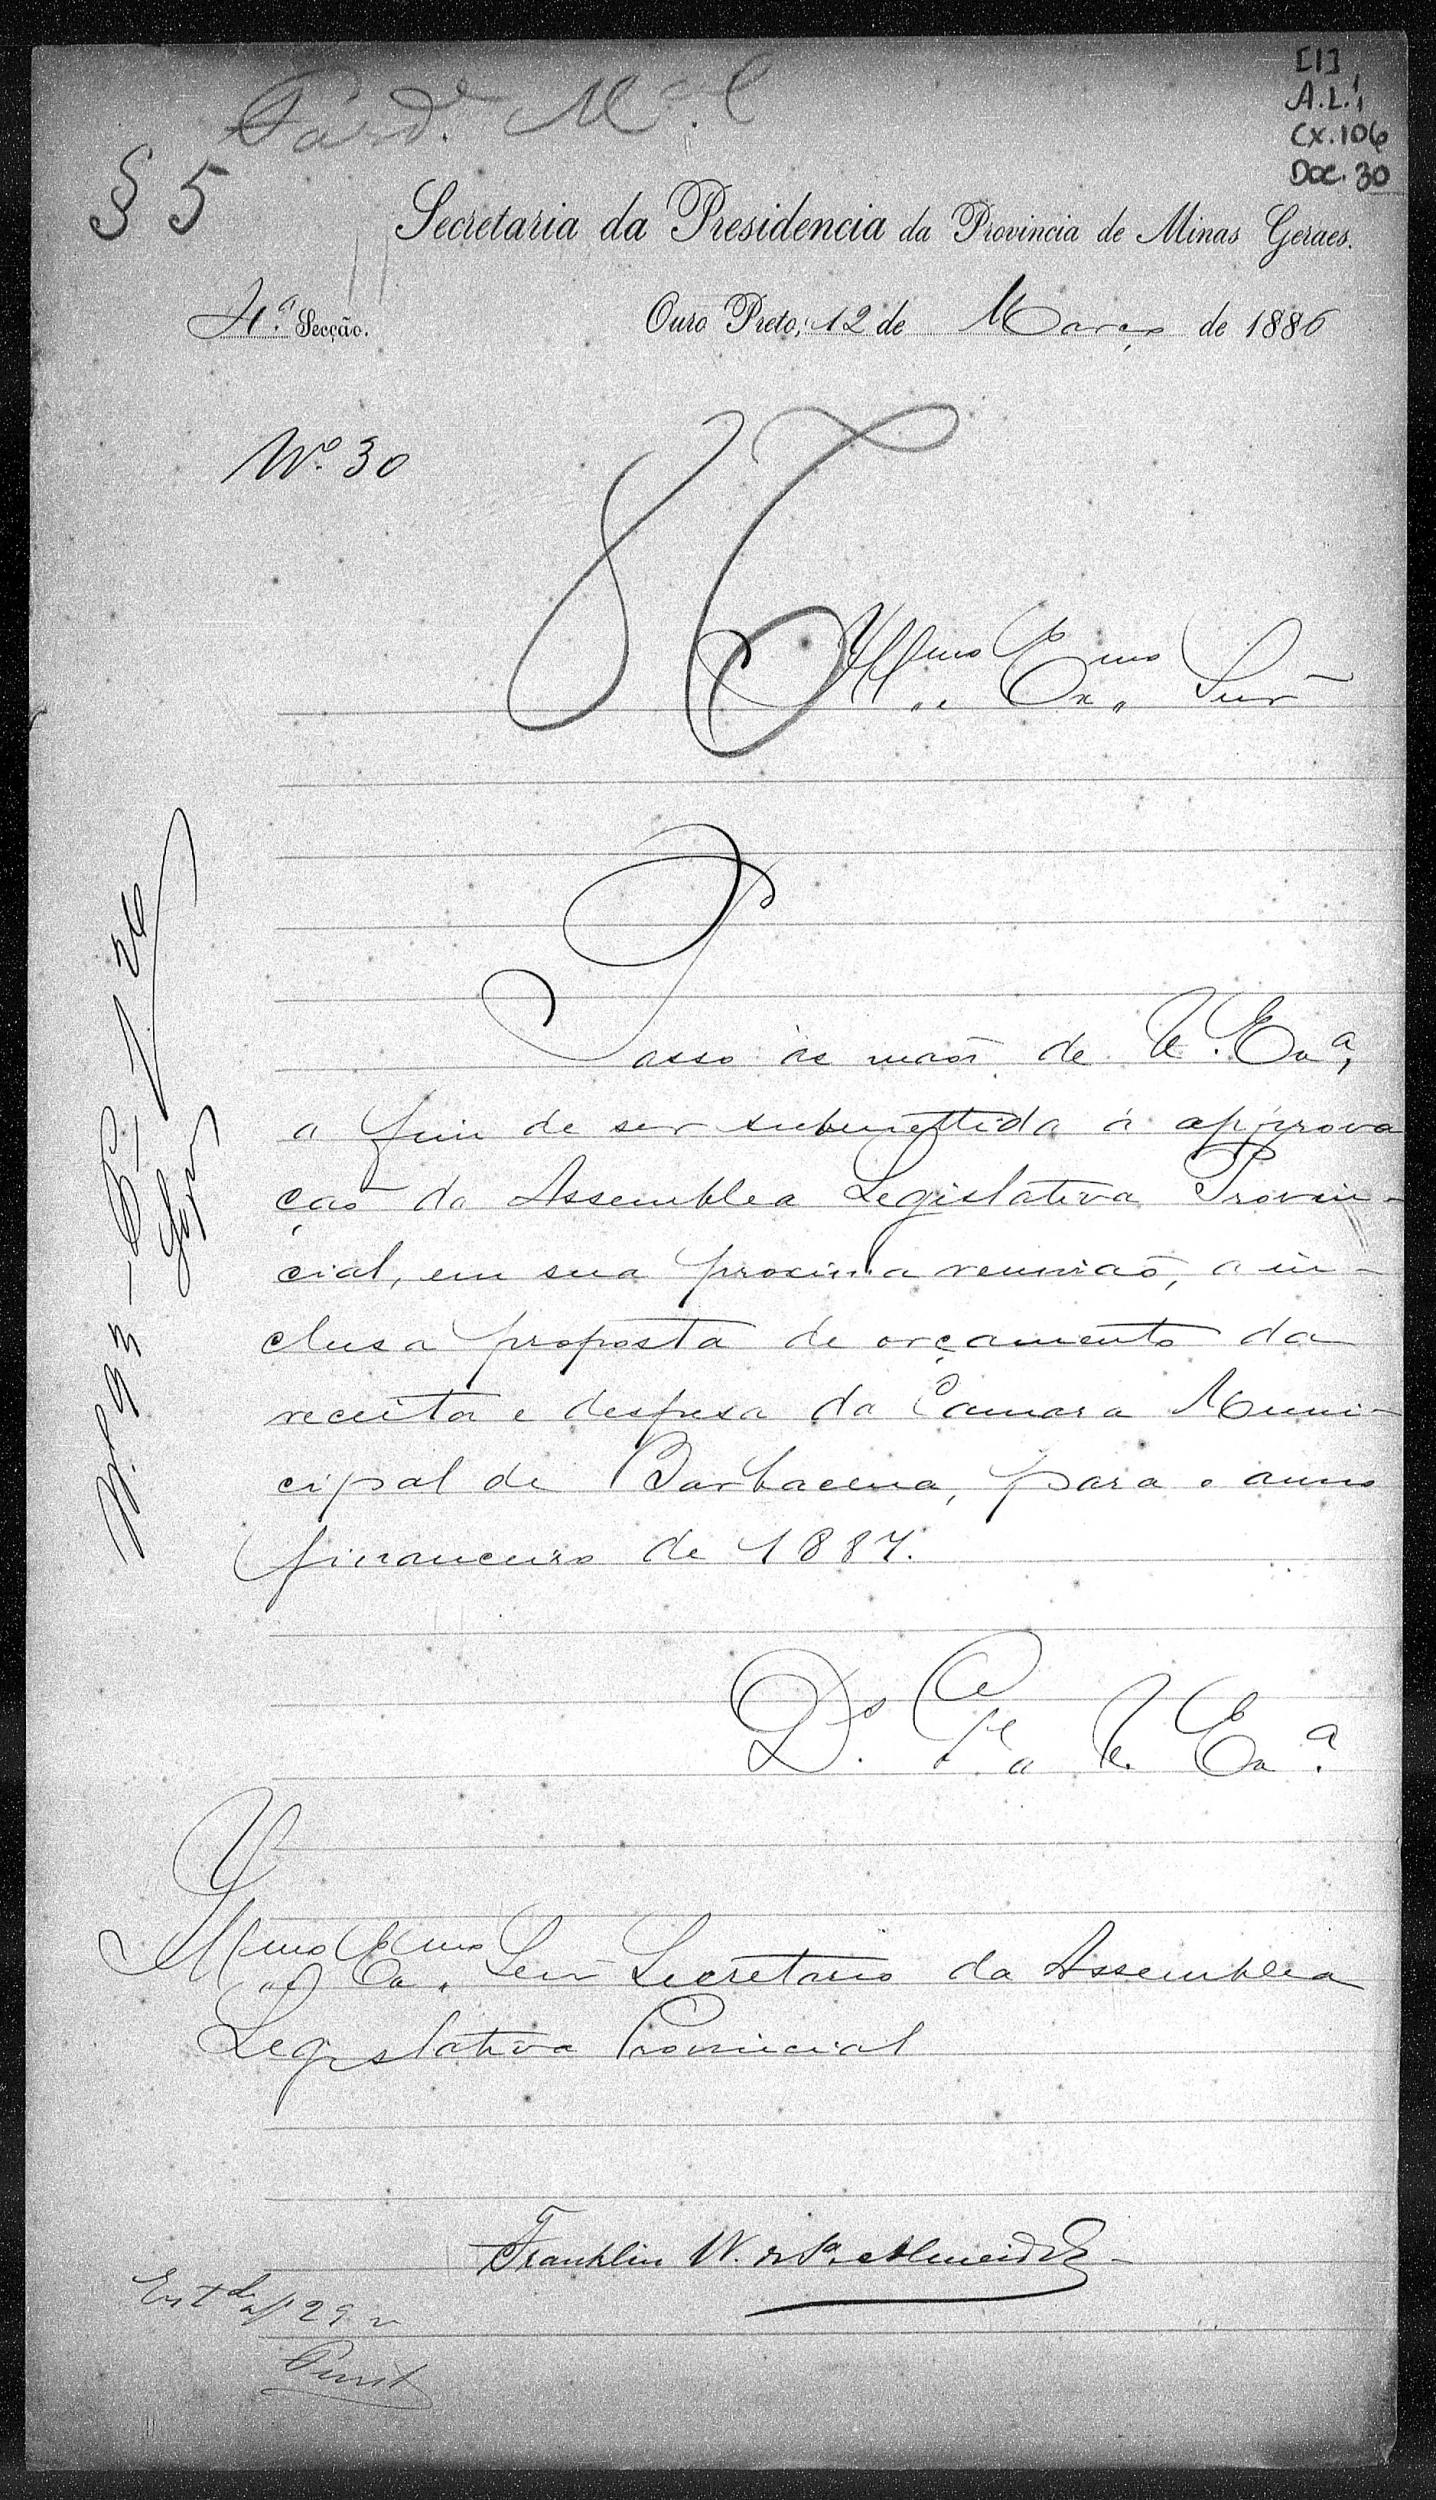 [1]
A.L.1,
CX.106
Doc. 30
§ 5
Secretaria da Presidencia da Provincia de Minas Geraes.
4.ª Secção. Ouro Preto, 12 de Março de 1886
Nº. 30
86
Illmo Exmo Senr
Passo ás mãos de V. Exª,
a fim de ser submettida á approva
ção da Assemblea Legislativa Provin-
cial, em sua proxima reunião, a in-
clusa proposta de orçamento da
receita e despesa da Camara Muni-
cipal de Barbacena, para o anno
financeiro de 1887.
Ds. Gde a V. Exª.
Illmo Exmo Senr Secretario da Assemblea
Legislativa Provincial
Franklin W. de Sa e Almeida
Nº 93
29 v